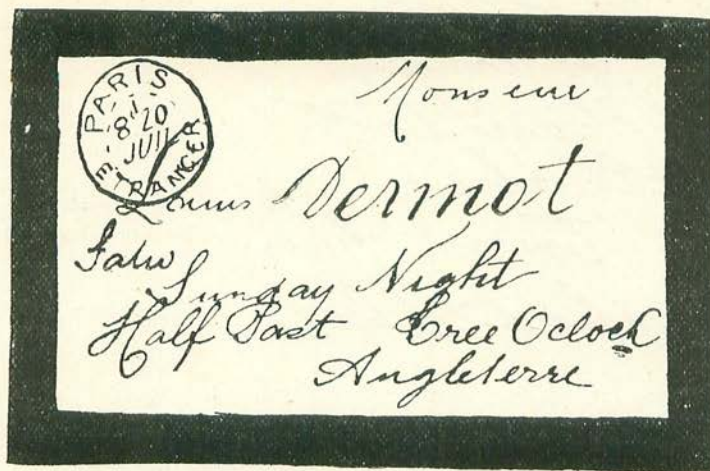 PARIS
1
8 20
JUIL
ETRANGER
Monseur
Louis Dermot
Sunday Night
Half Past Eree Ocloek
Angleterre